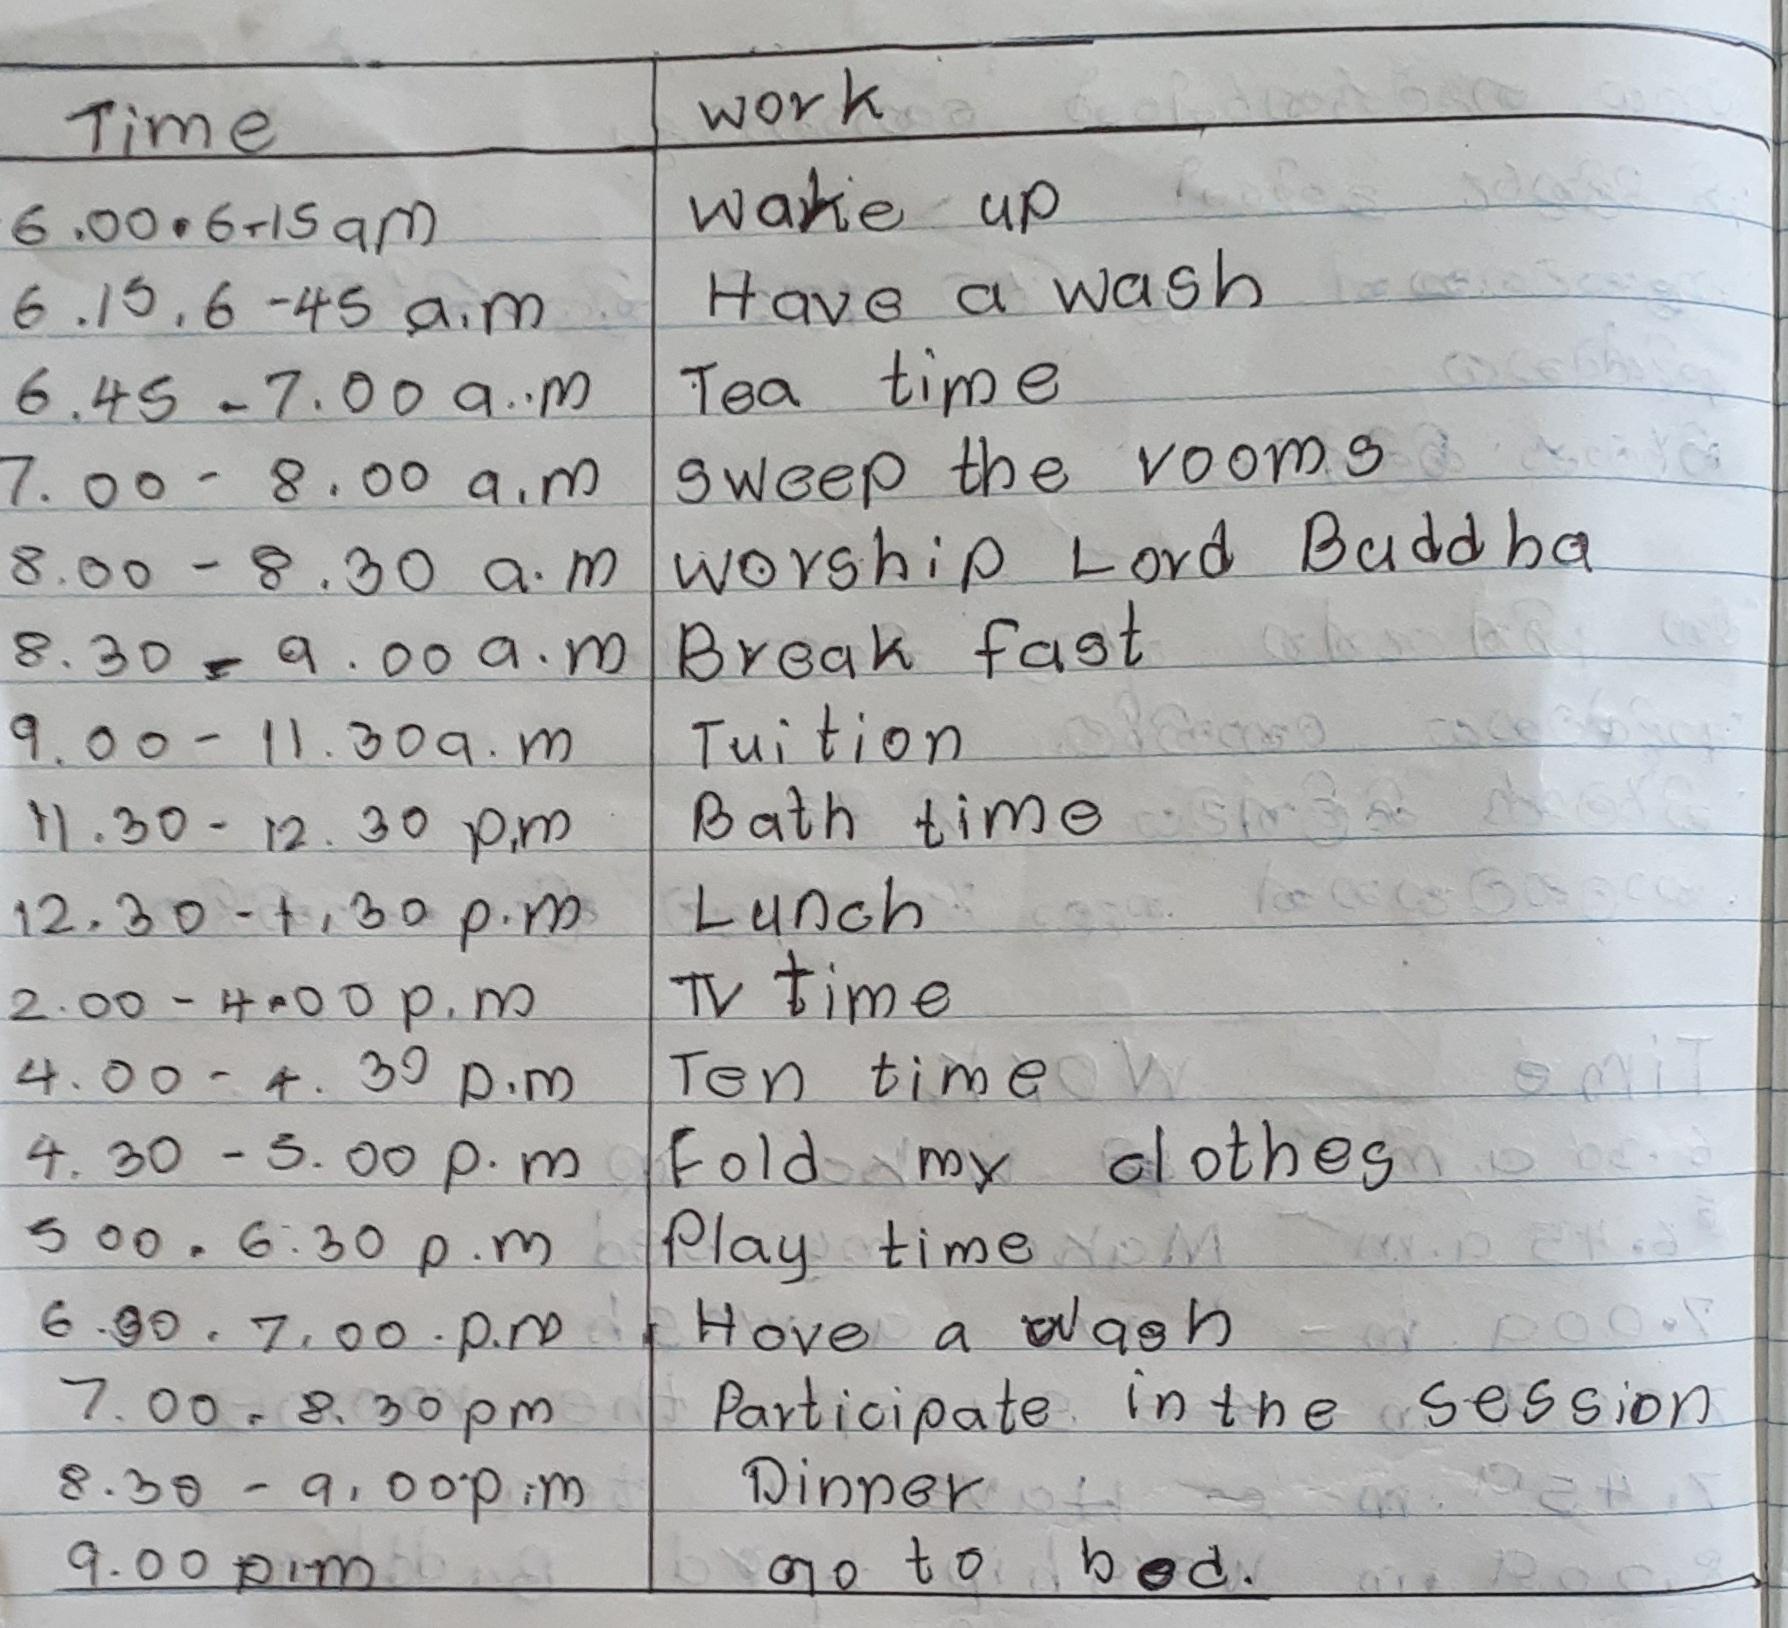 Time work
6.00.6-15am wake up
6.15.6-45 a.m Have a wash
6.45-7.00 a.m Tea time
7.00-8.00 a.m sweep the rooms
8.00-8.30 a.m worship Lord Buddha
8.30-9.00 a.m Break fast
9.00-11.30a.m Tuition
11.30-12.30 p.m Bath time
12.30-1.30 p.m Lunch
2.00-4.00 p.m TV time
4.00-4.30 p.m Ten time
4.30-5.00 p.m Fold my clothes
5 00.6.30 p.m Play time
6.30.7.00.p.m Have a wash
7.00.8.30 pm Participate in the session
8.30-9.00 p.m Dinner
9.00 p.m go to bed.